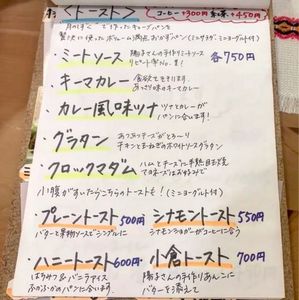 〈トースト〉 コーヒー+300円 紅茶+450円
月のしずくで作ったキューブパンを
贅沢に使ったボリューム満点おかずパン(ミニサラダ・ミニヨーグルト付)
・ミートソース 陽子さんの手作りミートソース 各750円
リピート率No.1!
・キーマカレー 食欲でそそります。
あっさり味のキーマカレー
・カレー風味ツナ ツナとカレーが
パンに合います!
・グラタン あつあつチーズがとろ〜り
チキンときのこのホワイトソースグラタン
・クロックマダム ハムとチーズに半熟目玉焼
マヨネーズはお好みで
小腹がすいたらこちらのトーストも!(ミニヨーグルト付)
・プレーントースト 500円 ・シナモントースト 550円
バターと果物ソースでシンプルに シナモンシュガーがコーヒーに合う
・ハニートースト 600円 ・小倉トースト 700円
はちみつ&バニラアイス 陽子さんの手作りあんこに
ふかふかのパンに合います。 バターを添えて